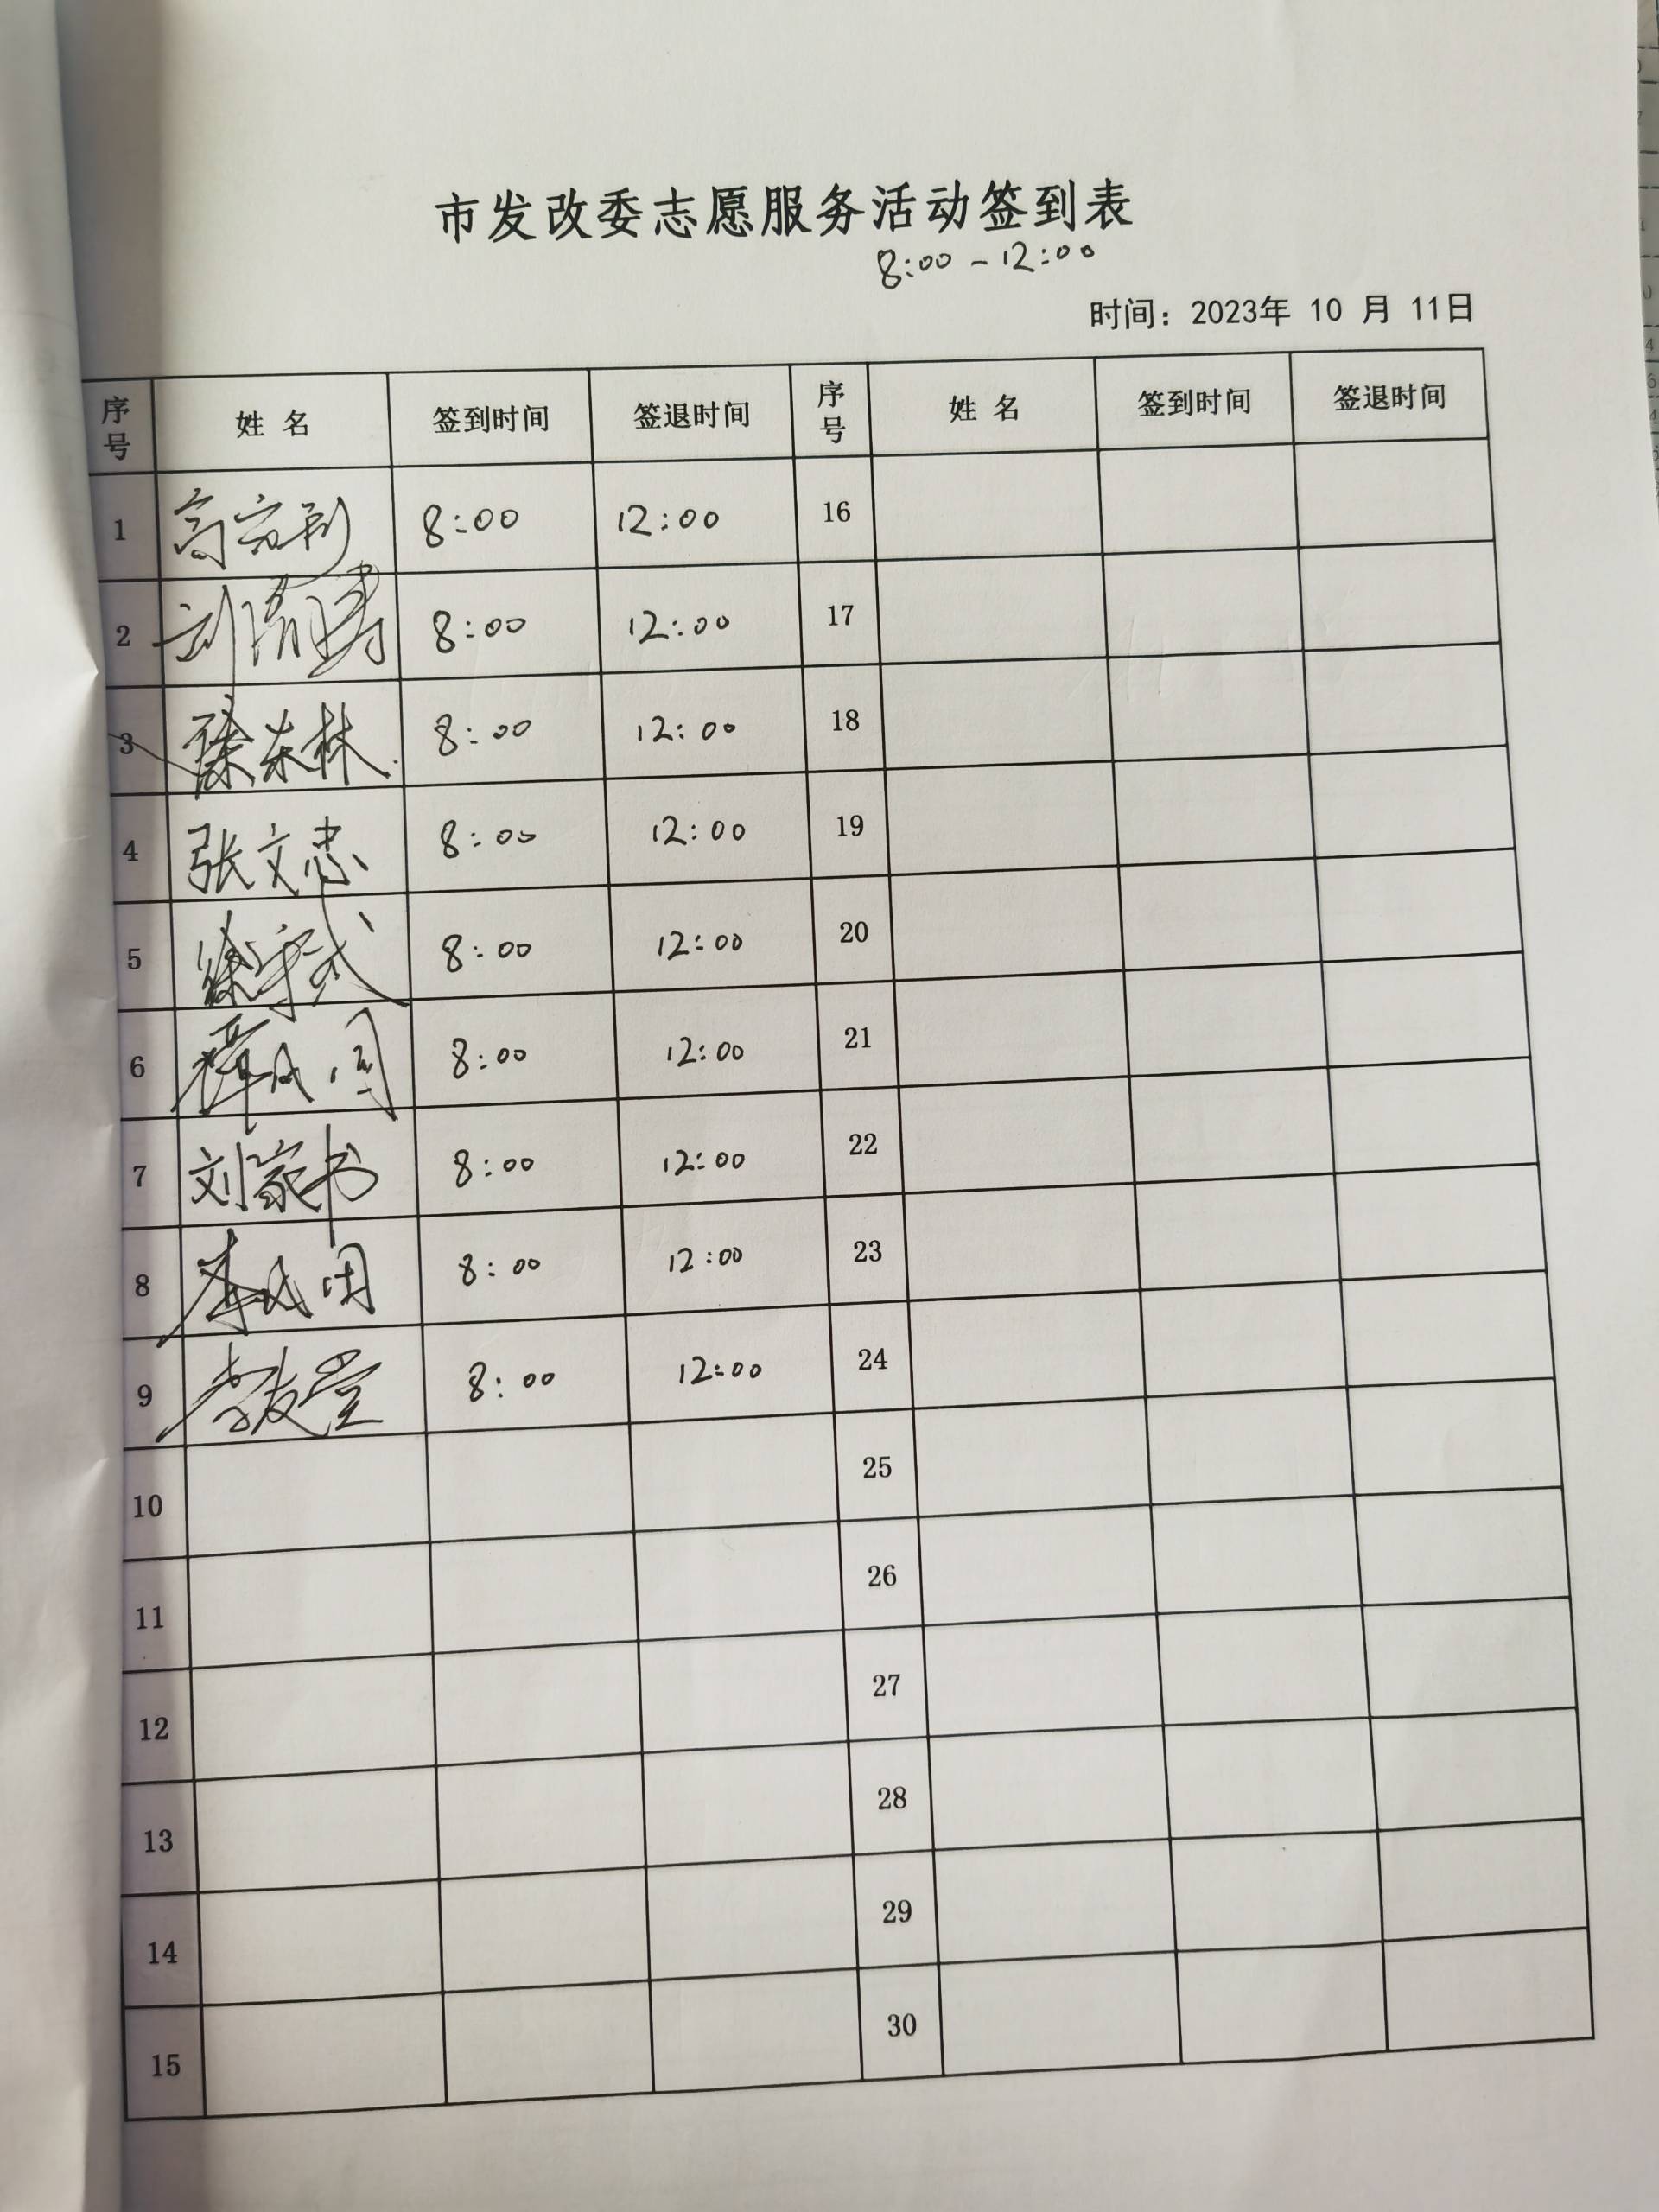 市发改委志愿服务活动签到表
8:00-12:00
时间：2023年 10 月 11日
序号 姓 名 签到时间 签退时间 序号 姓 名 签到时间 签退时间
1 8:00 12:00 16
2 8:00 12:00 17
3 徐东林 8:00 12:00 18
4 张文忠 8:00 12:00 19
5 8:00 12:00 20
6 8:00 12:00 21
7 刘家书 8:00 12:00 22
8 8:00 12:00 23
9 8:00 12:00 24
10 25
11 26
12 27
13 28
14 29
15 30